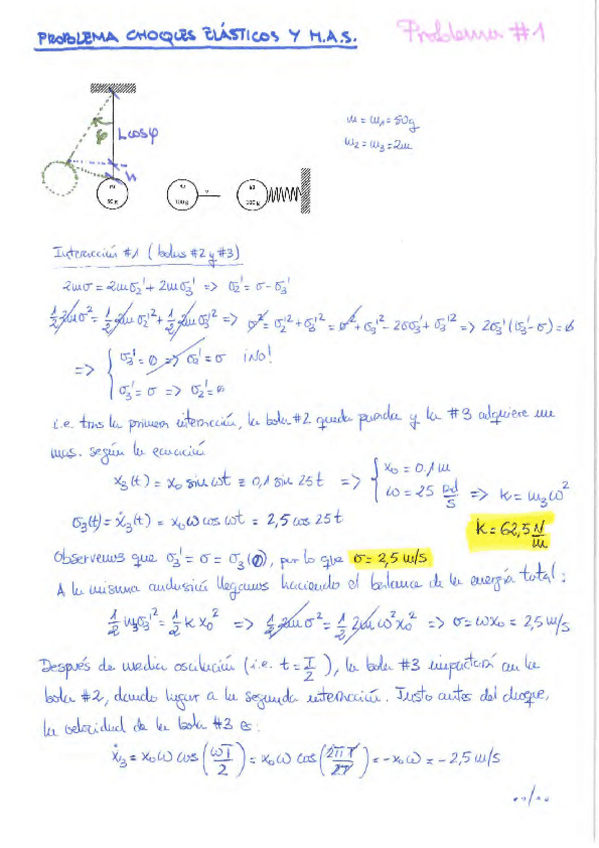 PROBLEMA CHOQUES ELÁSTICOS Y M.A.S. Problema #1
φ L cosφ
h
m = m₁ = 50g
m₂ = m₃ = 2m
Interacción #1 (bolas #2 y #3)
2mσ = 2mσ₂' + 2mσ₃' => σ₂' = σ - σ₃'
½2mσ² = ½2mσ₂'² + ½2mσ₃'² => σ² = σ₂'² + σ₃'² = σ² + σ₃'² - 2σσ₃' + σ₃'² => 2σ₃'(σ₃' - σ) = 0
=> { σ₃' = 0 => σ₂' = σ ¡NO!
σ₃' = σ => σ₂' = 0
i.e. tras la primera interacción, la bola #2 queda parada y la #3 adquiere un
mas. según la ecuación
x₃(t) = x₀ sin ωt ≡ 0,1 sin 25t => { x₀ = 0.1m
ω = 25 Rd/s => k = m₃ω²
σ₃(t) = ẋ₃(t) = x₀ω cos ωt = 2,5 cos 25t
k = 62,5 N/m
Observemos que σ₃' = σ = σ₃(0), por lo que σ = 2,5 m/s
A la misma conclusión llegamos haciendo el balance de la energía total:
½m₃σ₃'² = ½kx₀² => ½2mσ² = ½2mω²x₀² => σ = ωx₀ = 2,5 m/s
Después de media oscilación (i.e. t = T/2), la bola #3 impactará con la
bola #2, dando lugar a la segunda interacción. Justo antes del choque,
la velocidad de la bola #3 es:
ẋ₃ = x₀ω cos(ωT/2) = x₀ω cos(2πT/2T) = -x₀ω = -2,5 m/s
../..